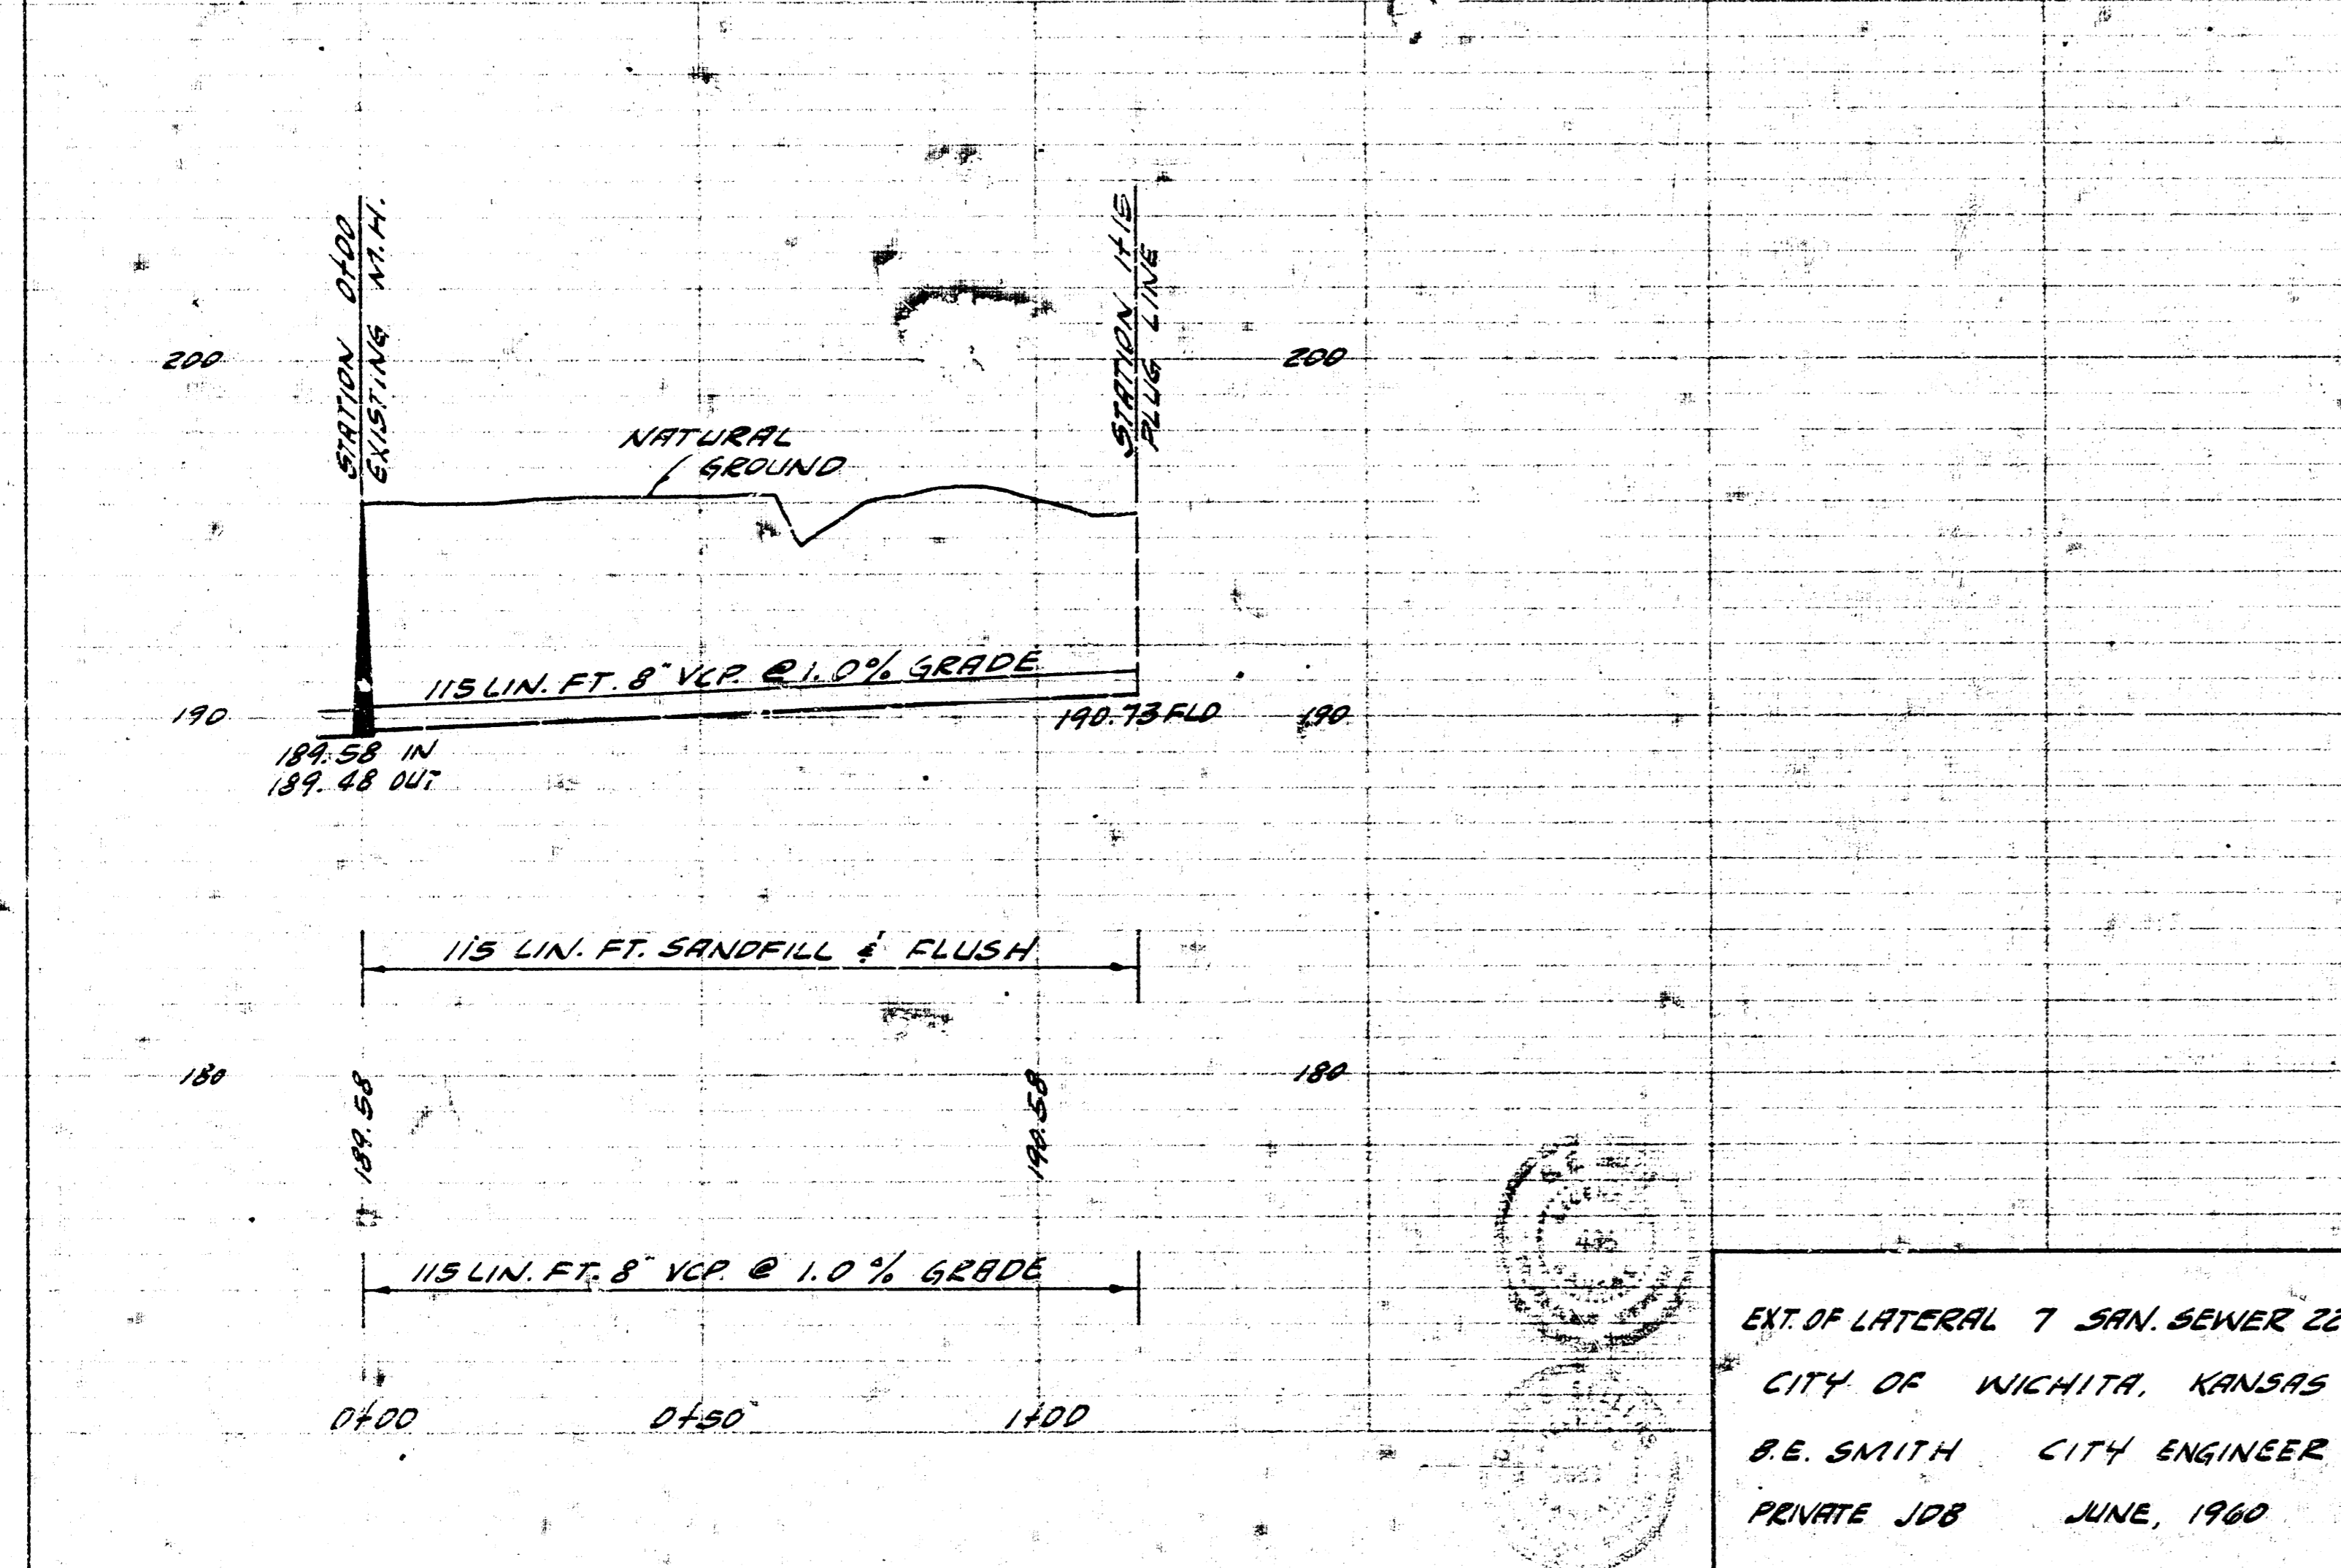 STATION 0+00
EXISTING M.H.
STATION 1+15
PLUG LINE
200
200
NATURAL
GROUND
115 LIN. FT. 8" VCP. @ 1.0% GRADE
190
190.73 FLD
190
189.58 IN
189.48 OUT
115 LIN. FT. SANDFILL & FLUSH
180
180
189.58
190.58
115 LIN. FT. 8" VCP. @ 1.0% GRADE
0+00
0+50
1+00
EXT. OF LATERAL 7 SAN. SEWER 22
CITY OF WICHITA, KANSAS
B.E. SMITH CITY ENGINEER
PRIVATE JOB JUNE, 1960